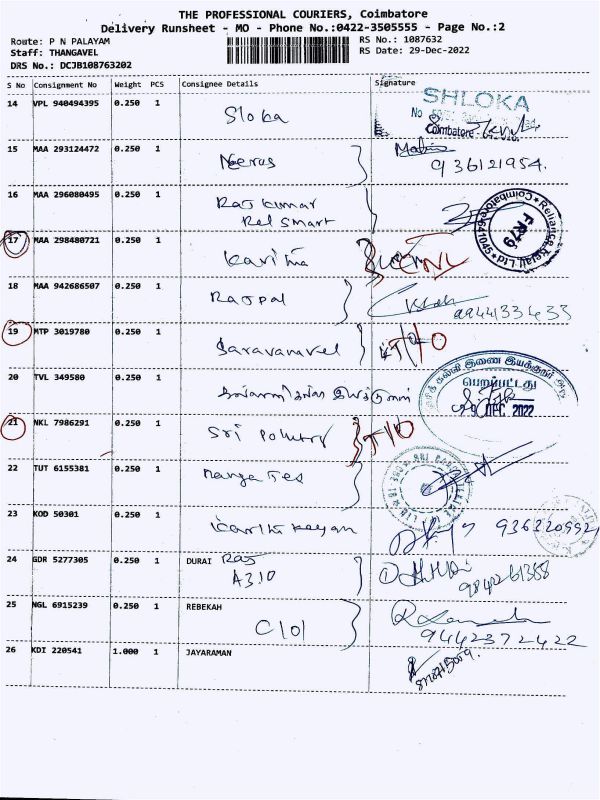 THE PROFESSIONAL COURIERS, Coimbatore
Delivery Runsheet - MO - Phone No.:0422-3505555 - Page No.:2
Route: P N PALAYAM RS No.: 1087632
Staff: THANGAVEL RS Date: 29-Dec-2022
DRS No.: DCJB108763202
S No Consignment No Weight PCS Consignee Details Signature
14 VPL 940494395 0.250 1 Sloka SHLOKA
No
Coimbatore
15 MAA 293124472 0.250 1 Neerus
936121954.
16 MAA 296080495 0.250 1 Rajkumar
Rel Smart
Reliance Retail Ltd. Coimbatore 641045 FR79
17 MAA 298480721 0.250 1 Kavitha CNL
18 MAA 942686507 0.250 1 Rajpal
9944133433
19 MTP 3019780 0.250 1 Saravanavel
20 TVL 349580 0.250 1
பெறப்பட்டது
DEC 2022
21 NKL 7986291 0.250 1 Sri Poultry
22 TUT 6155381 0.250 1
23 KOD 50301 0.250 1 Karthikeyan
24 GDR 5277305 0.250 1 DURAI Raj
A310
9842261368
25 NGL 6915239 0.250 1 REBEKAH
C101
9442372422
26 KDI 220541 1.000 1 JAYARAMAN